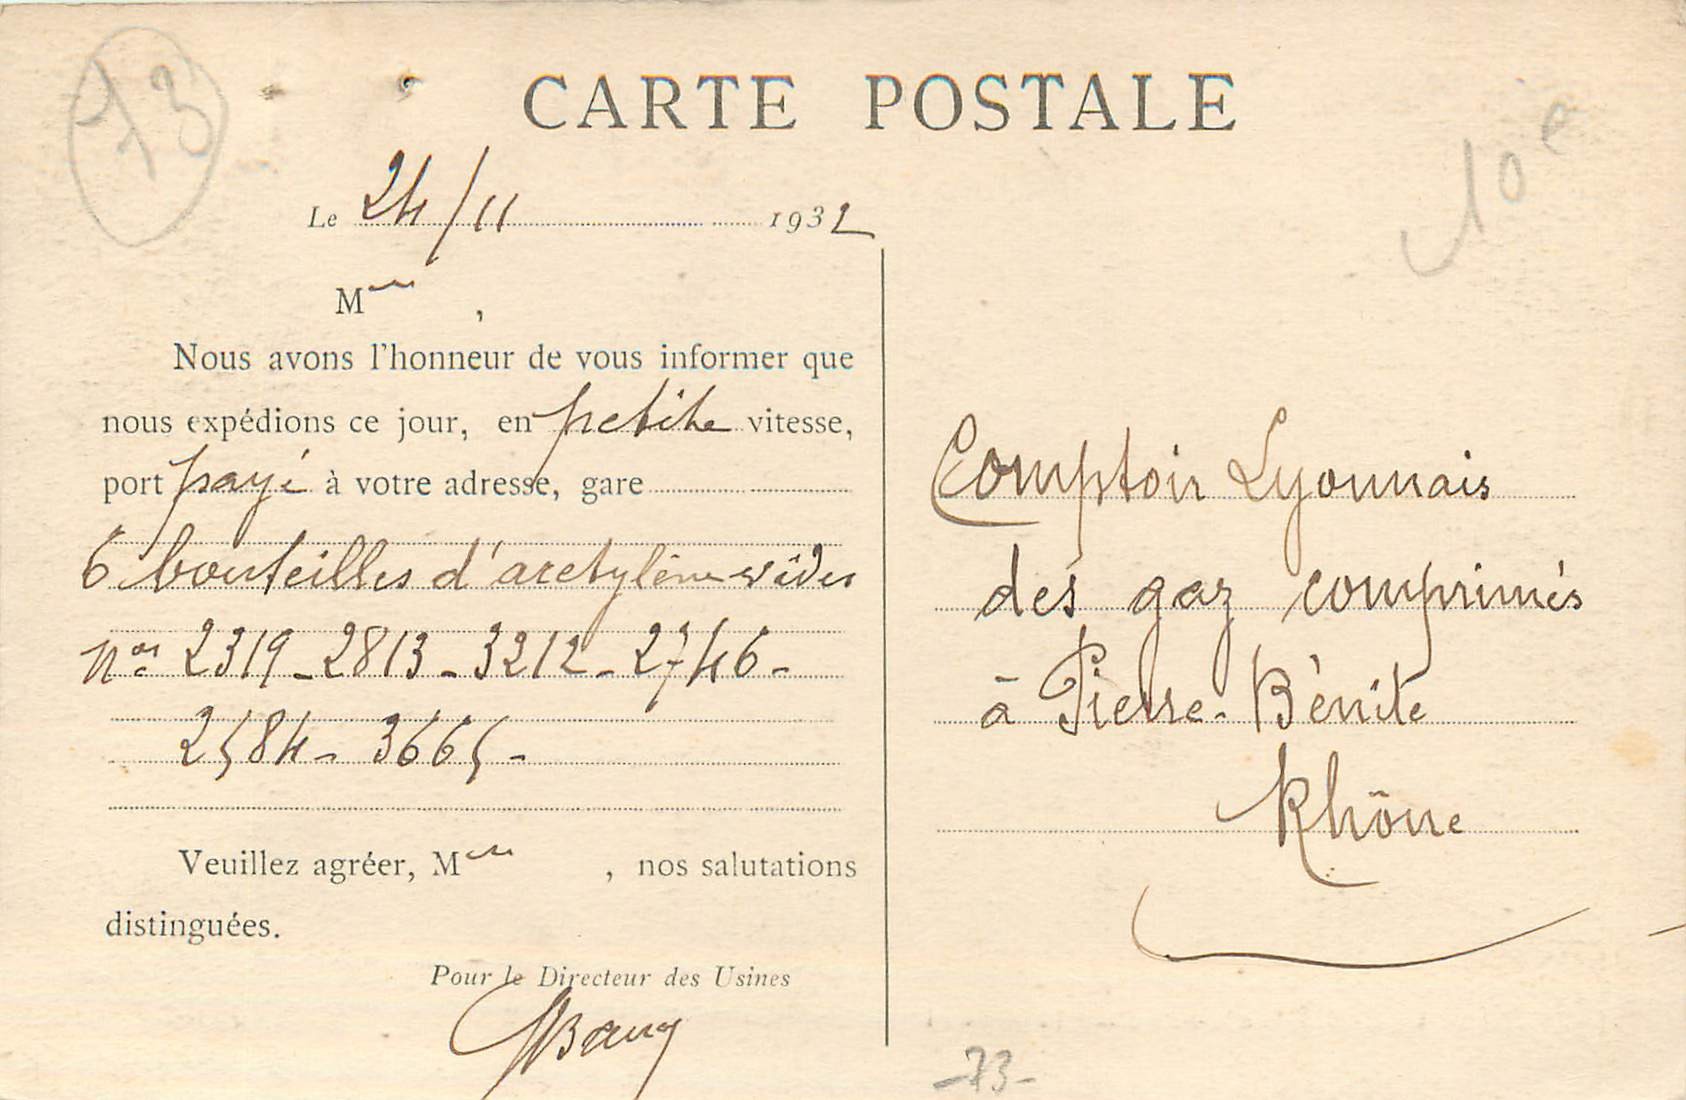 73
CARTE POSTALE
10 e
Le 24/11 1932
M ,
Nous avons l'honneur de vous informer que
nous expédions ce jour, en petite vitesse,
port payé à votre adresse, gare
6 bouteilles d'acetylène vides
Nos 2319 - 2813 - 3212 - 2746 -
2584 - 3665 -
Veuillez agréer, M , nos salutations
distinguées.
Pour le Directeur des Usines
Comptoir Lyonnais
des gaz comprimés
à Pierre-Bénite
Rhône
- 73 -